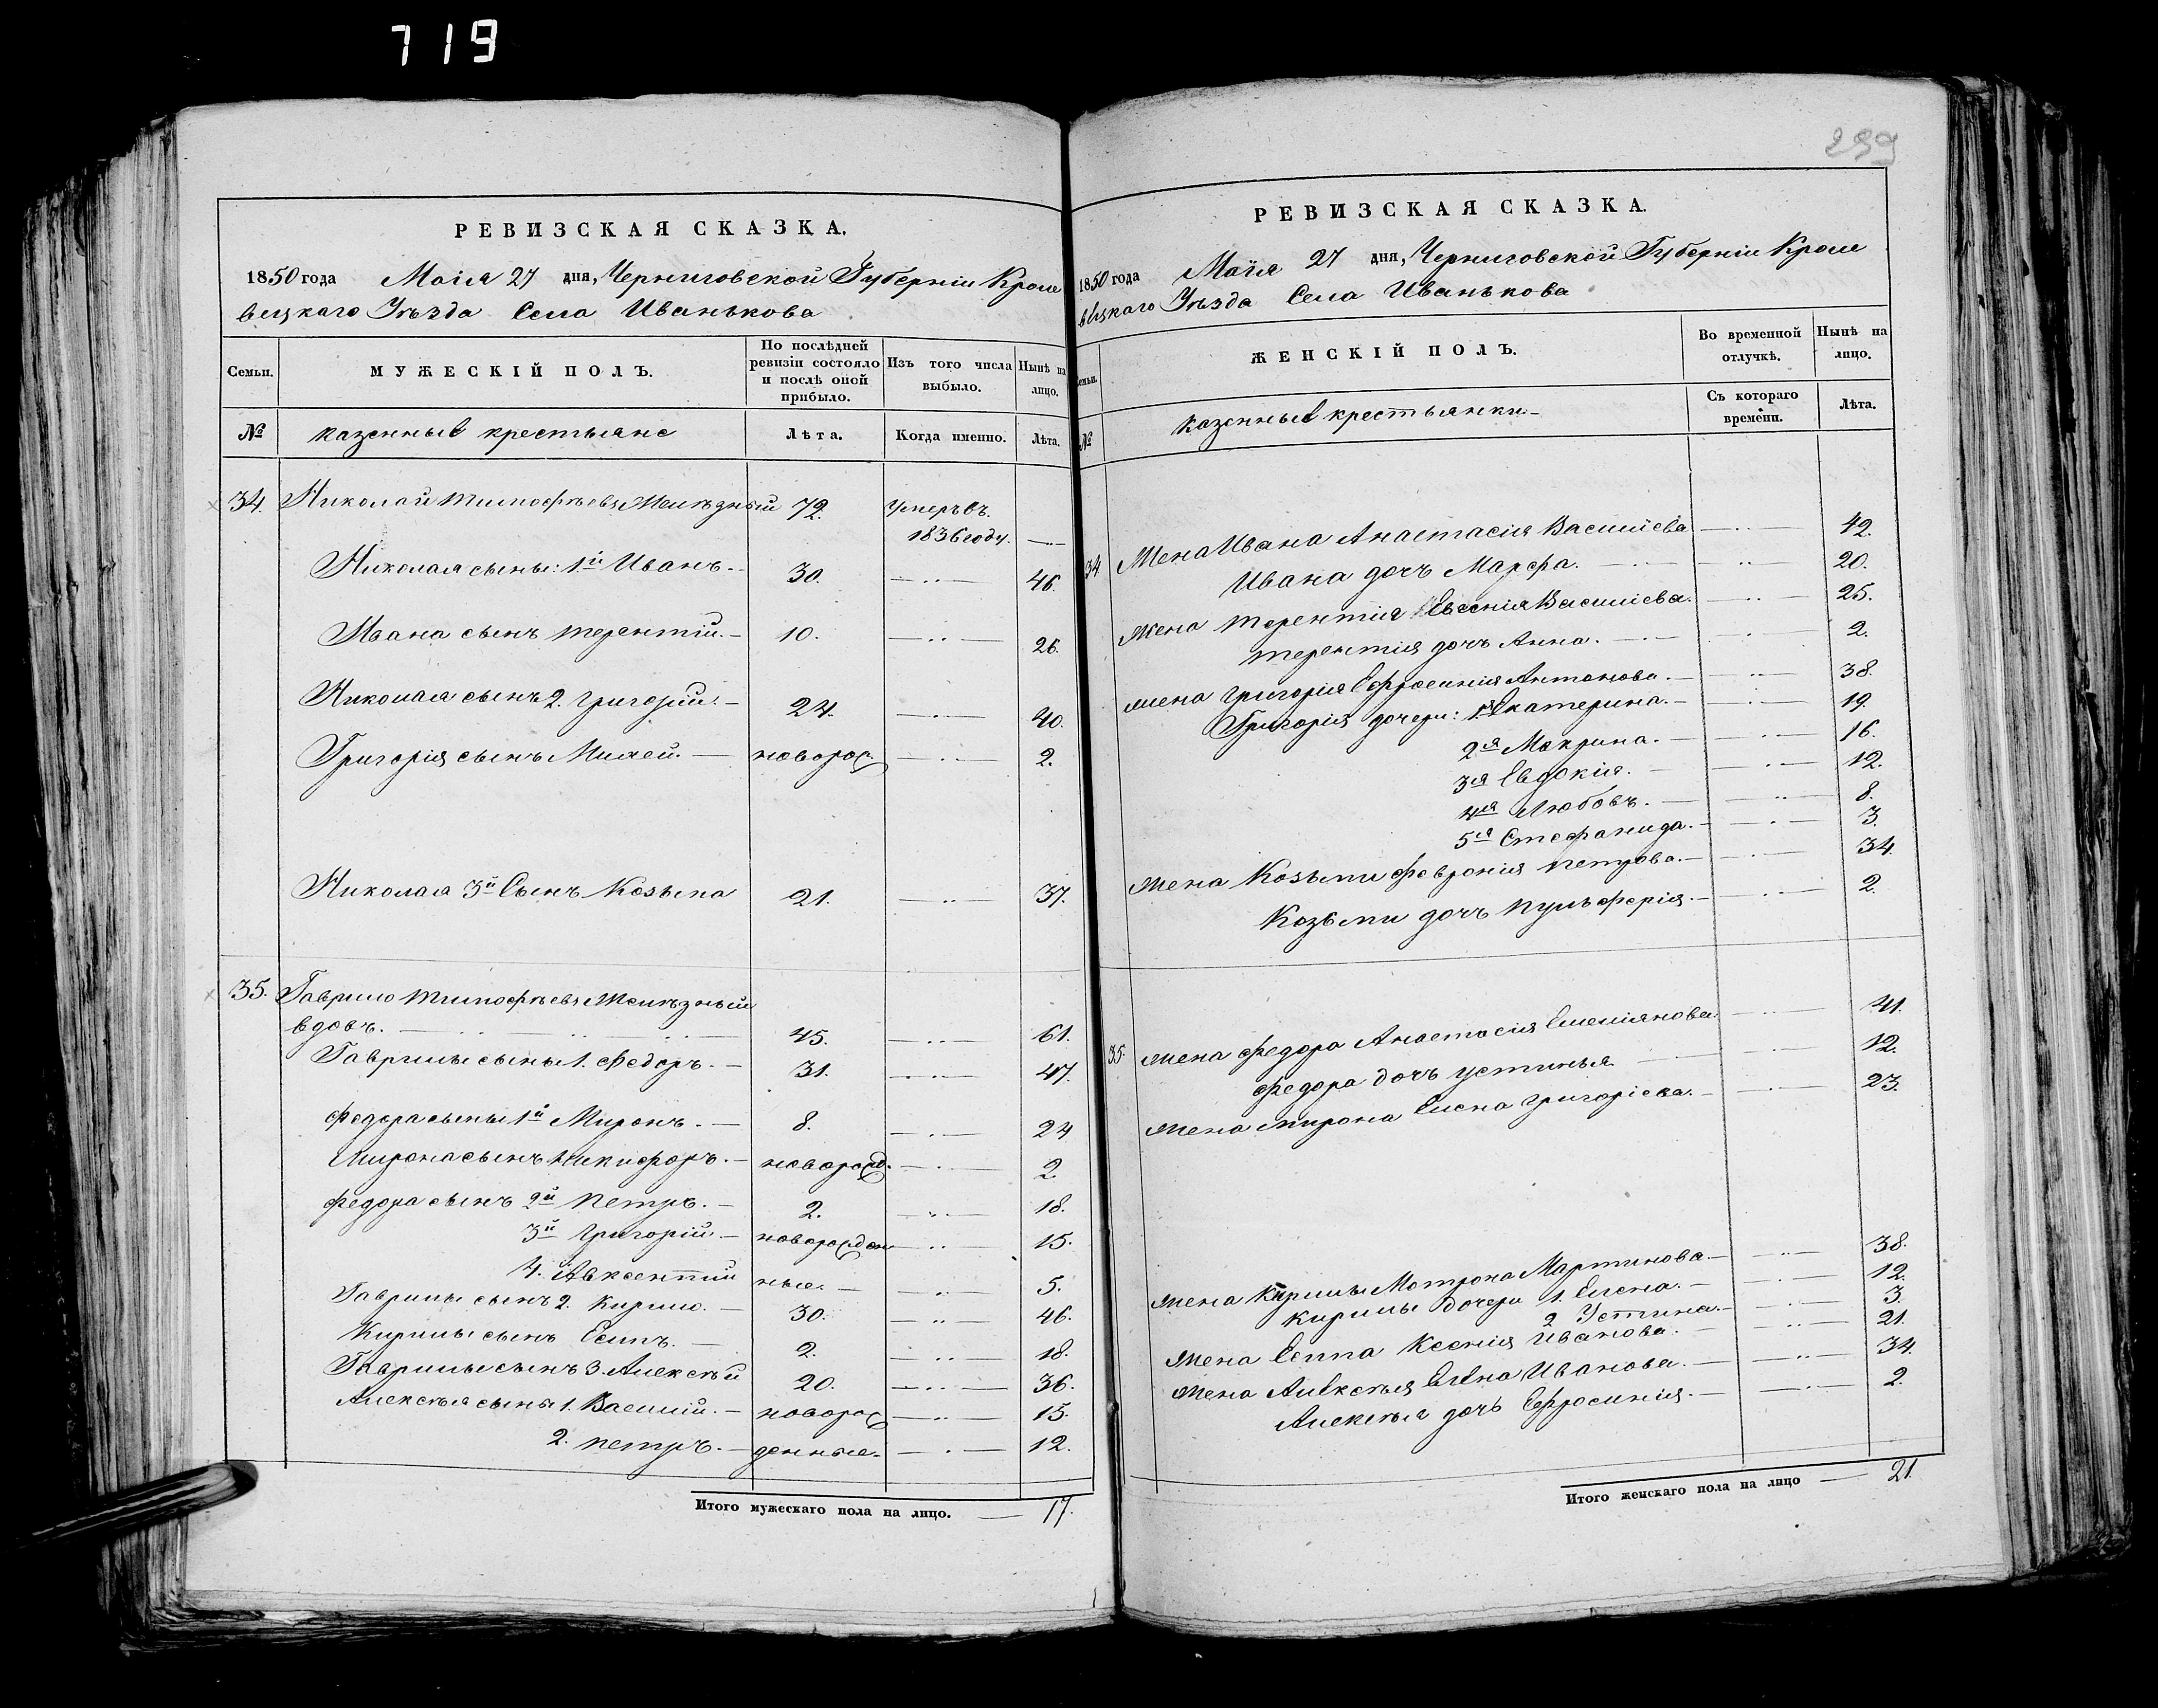 719
299
РЕВИЗСКАЯ СКАЗКА.
1850 года Маія 27 дня, Черниговской Губерніи Кроле
вецкаго Уѣзда Села Иванькова
Семьи. МУЖЕСКІЙ ПОЛЪ. По послѣдней ревизіи состояло и послѣ оной прибыло. Изъ того числа выбыло. Нынѣ на лицо.
№ казенные крестьяне Лѣта. Когда именно. Лѣта.
34. Николай Тимофѣевъ Желѣзный 72. умеръ въ
1836 году. —
Николая сыны: 1й Иванъ. 30. — 46.
Ивана сынъ Терентій. — 10. — 26.
Николая сынъ 2. Григорій. — 24. — 40.
Григорія сынъ Михей. — новорож. — 2.
Николая 3й Сынъ Козьма 21. — 37.
35. Гаврило Тимофѣевъ Желѣзный
вдовъ. — 45. — 61.
Гаврилы сыны 1. Федоръ. — 31. — 47.
Федора сыны 1й Миронъ. — 8. — 24
Мирона сынъ Никифоръ. — новорожд. — 2
Федора сынъ 2й Петръ. — 2. — 18.
3й Григорій — новорожден — 15.
4. Авксентий ные. — 5.
Гаврилы сынъ 2. Кирило. — 30. — 46.
Кирилы сынъ Есипъ. — 2. — 18.
Гаврилы сынъ 3. Алексѣй 20. — 36.
Алексѣя сыны 1. Василій. — новорож — 15.
2. Петръ. — денные. — 12.
Итого мужескаго пола на лицо. — 17.
РЕВИЗСКАЯ СКАЗКА.
1850 года Маія 27 дня, Черниговской Губерніи Кроле
вецкаго Уѣзда Села Иванькова
Семьи. ЖЕНСКІЙ ПОЛЪ. Во временной отлучкѣ. Нынѣ на лицо.
№ казенные крестьянки — Съ котораго времени. Лѣта.
34 Жена Ивана Анастасія Василіева — 42.
Ивана дочъ Марфа. — 20.
Жена Терентія Евгенія Василіева. — 25.
Терентія дочъ Анна. — 2.
Жена Григорія Ефросинія Антонова. — 38.
Григорія дочери: 1я Екатерина. — 19.
2я Макрина. — 16.
3я Евдокія. — 12.
4я Любовъ. — 8.
5я Стефанида. — 3.
Жена Козьмы Февронія Петрова. — 34.
Козьмы дочъ Пульферія. — 2.
35. Жена Федора Анастасія Емеліянова. — 41.
Федора дочъ Устинья — 12.
Жена Мирона Елена Григоріева. — 23.
Жена Кирилы Мотрона Мартинова — 38.
Кирилы дочери 1. Елена. — 12.
2 Устина. — 3.
Жена Есипа Ксенія Иванова. — 21.
Жена Алексѣя Елена Иванова. — 34.
Алексѣя дочъ Ефросинія. — 2.
Итого женскаго пола на лицо — 21